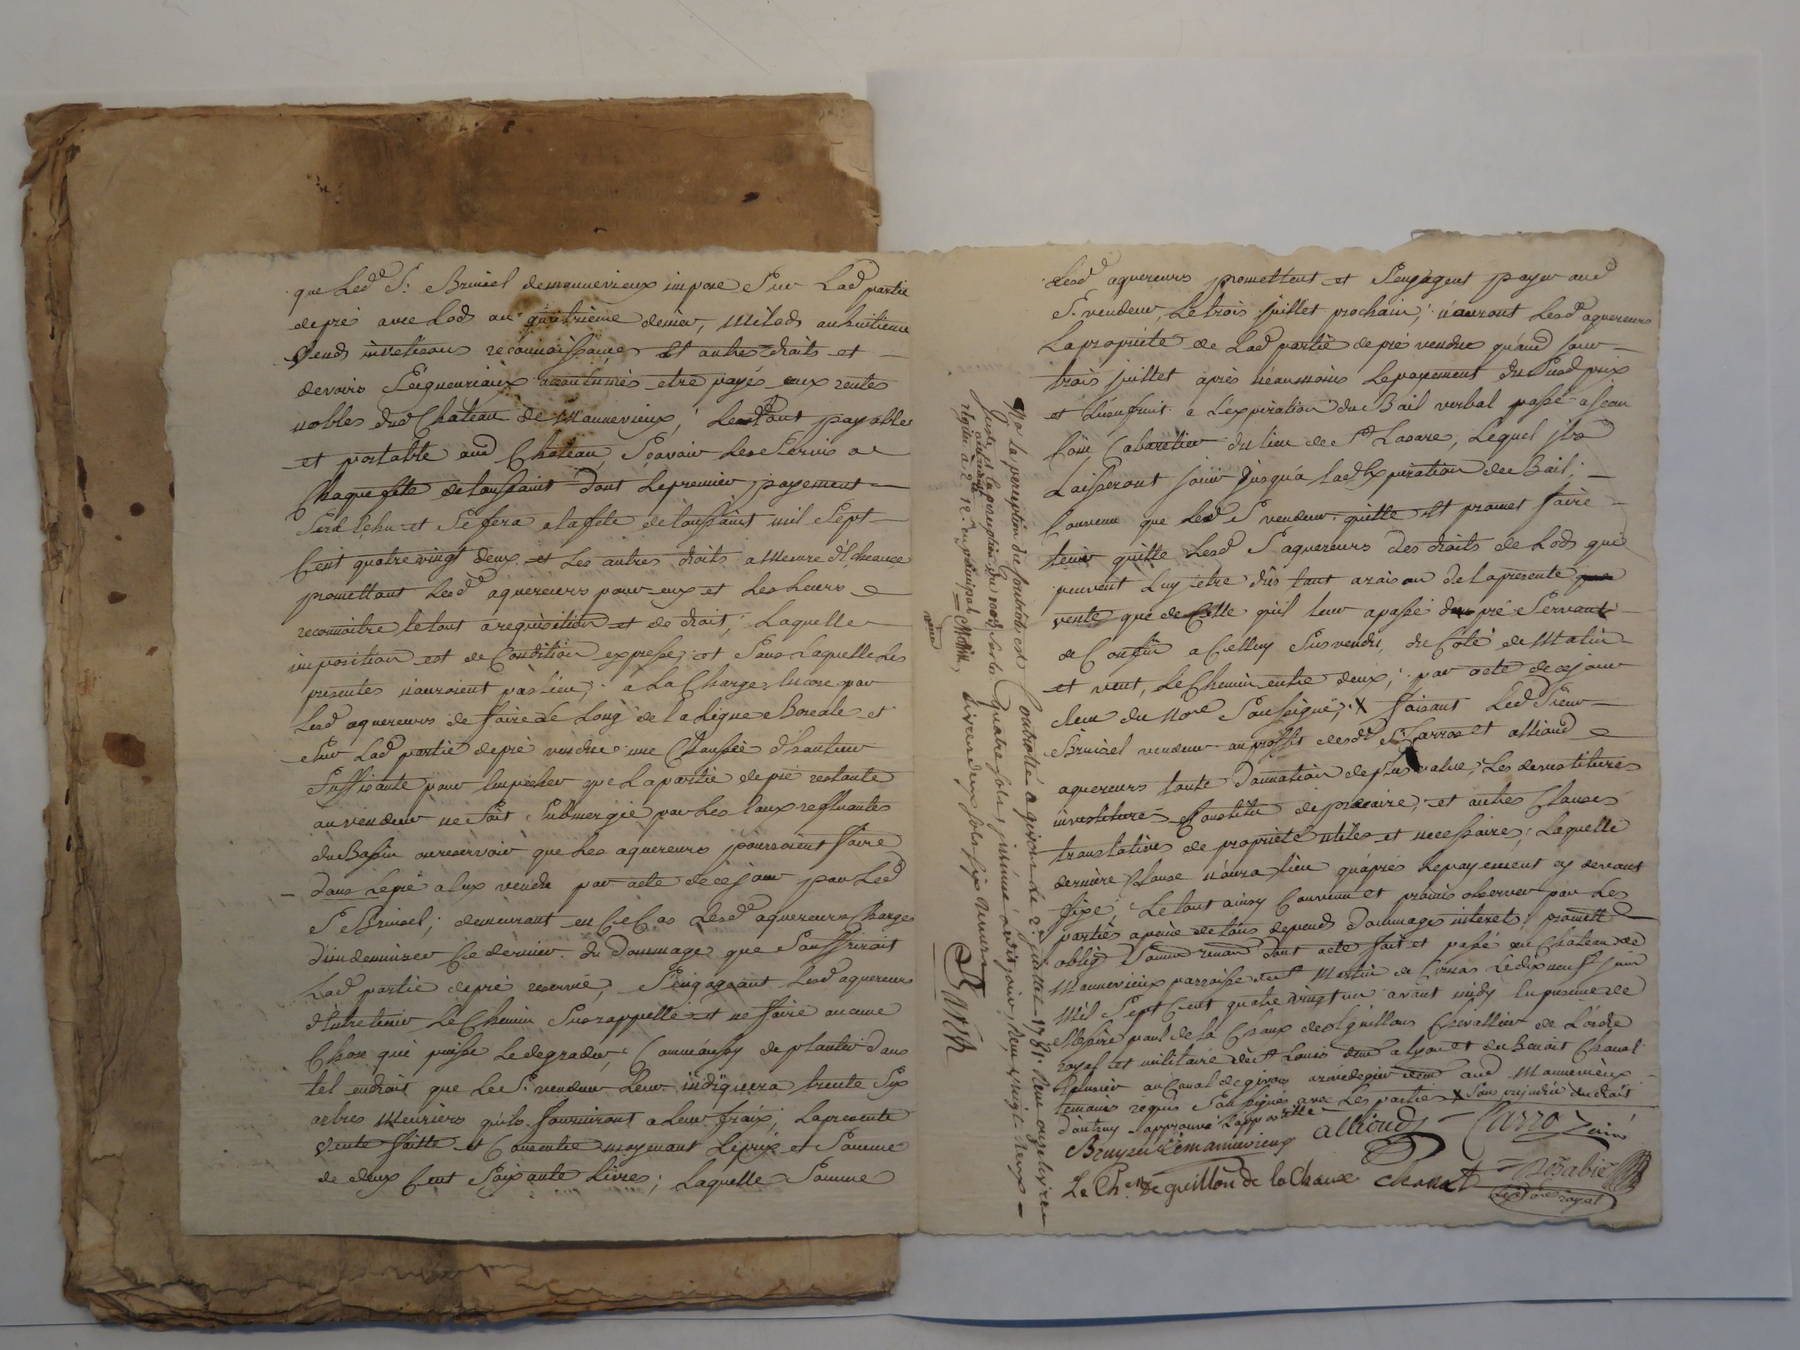 que Led.t S.r Bruisel demannevieux impose Sur Lad. partie
depré avec Lods au quatrième denier, Milods au huitieme
Vends investisons reconnoissances Et autres droits et
devoirs Seigneuriaux accoutumés etre payés aux rentes
nobles dud. Chateau de Mannevieux; Le tout payable
et portable aud. Chateau, Sçavoir Les Servis a
Chaque fête de toussaint dont Le premier payement
Sera Echu et Se fera a la fête de toussaint mil Sept
Cent quatre vingt deux et Les autres droits a Mesure d'Echeance
promettant Lesd. aquereurs pour eux et Les Leurs
reconnoitre le tout a requisition et de droit; Laquelle
imposition est de Condition expresse, et Sans Laquelle Les
presentes n'auroient pas lieu; a La Charge Encore par
Lesd. aquereurs de faire Le Long de la Ligne Boreale et
Sur Lad. partie depré vendue une Chaussée d'hauteur
Suffisante pour Empecher que La partie de pré restante
au vendeur ne Soit Submergée par Les Eaux refluantes
du Bassin ou reservoir que Les aquereurs pourroient faire
dans Le pré a Eux vendu par acte de ce jour par Led.
S. Bruisel; demeurant en Ce Cas Lesd. aquereurs Chargés
d'indemniser Ce dernier du Dommage que Souffriroit
Lad. partie depré reservée, S'engageant Lesd. aquereurs
d'Entretenir Le Chemin Susrappellé et ne faire aucune
Chose qui puisse Le degrader, Comme aussy de planter dans
tel endroit que Le S.r vendeur Leur indiquera trente Six
arbres Meuriers qu'ils fourniront a Leur fraix; La presente
Vente faitte et Consentie moyenant Le prix et Somme
de deux Cent Soixante Livres; Laquelle Somme
N.a la perception du Controlle est
juste, et la perception du 100.e
Controllé a givors Le 2.e juillet 1781. Reçu onze livres
quatre sols
Livres deux sols six deniers
Lesd. aquereurs promettent et S'engagent payer aud.
S. vendeur Le trois juillet prochain; n'auront Lesd. aquereurs
La propriété de Lad. partie depré vendue qu'aud. jour
trois juillet après néanmoins Le payement du Susd. prix
et L'usufruit a L'expiration du Bail verbal passé a Jean
Cabaretier du lieu de S.t Lazare, Lequel ils
Laisseront jouir jusqu'a Lad. Expiration de Bail;
Convenu que Led. S. vendeur quitte Et promet faire
tenir quitte Lesd. S. aquereurs des droits de Lods que
peuvent Luy etre dûs tant a raison de la presente
vente que de Celle qu'il leur a passé du pré Servant
de Confin a Celluy Susvendu, du Coté de Matin
et vent, Le Chemin entre deux; par acte de ce jour
reçu du No.re Soussigné; X faisant Led. Sieur
Bruisel vendeur au proffit desd. S.rs Carroz et alliaud
aquereurs toute Donnation de plus value, Les devestitures
investitures Constitut de precaire, et autres Clauses
translatives de propriété utiles et necessaires; Laquelle
dernière Clause n'aura lieu qu'après Le payement cy devant
fixé; Le tout ainsy Convenu et promis observer par Les
parties a peine de tous depends Dommages interets; promett.
oblig. Soumis. renon. Dont acte fait et passé au Chateau de
Mannevieux parroisse de S.t Martin de Cornas Le dix neuf juin
Mil Sept Cent quatre vingt un avant midy En presence de
Messire paul de La Chaux des Eguillons Chevallier de L'ordre
royal et militaire de S.t Louis dem.t a lyon et de Benoit Chanal
au Canal de givors aud. Mannevieux
temoins requis Soussignés avec Les parties X Sans prejudice du droit
d'autruy S'approuvé L'appostille
Bruysel Demannevieux alliaud Carro Zainé
Le Ch.er De guillon de la Chaux Chanal Dezabie